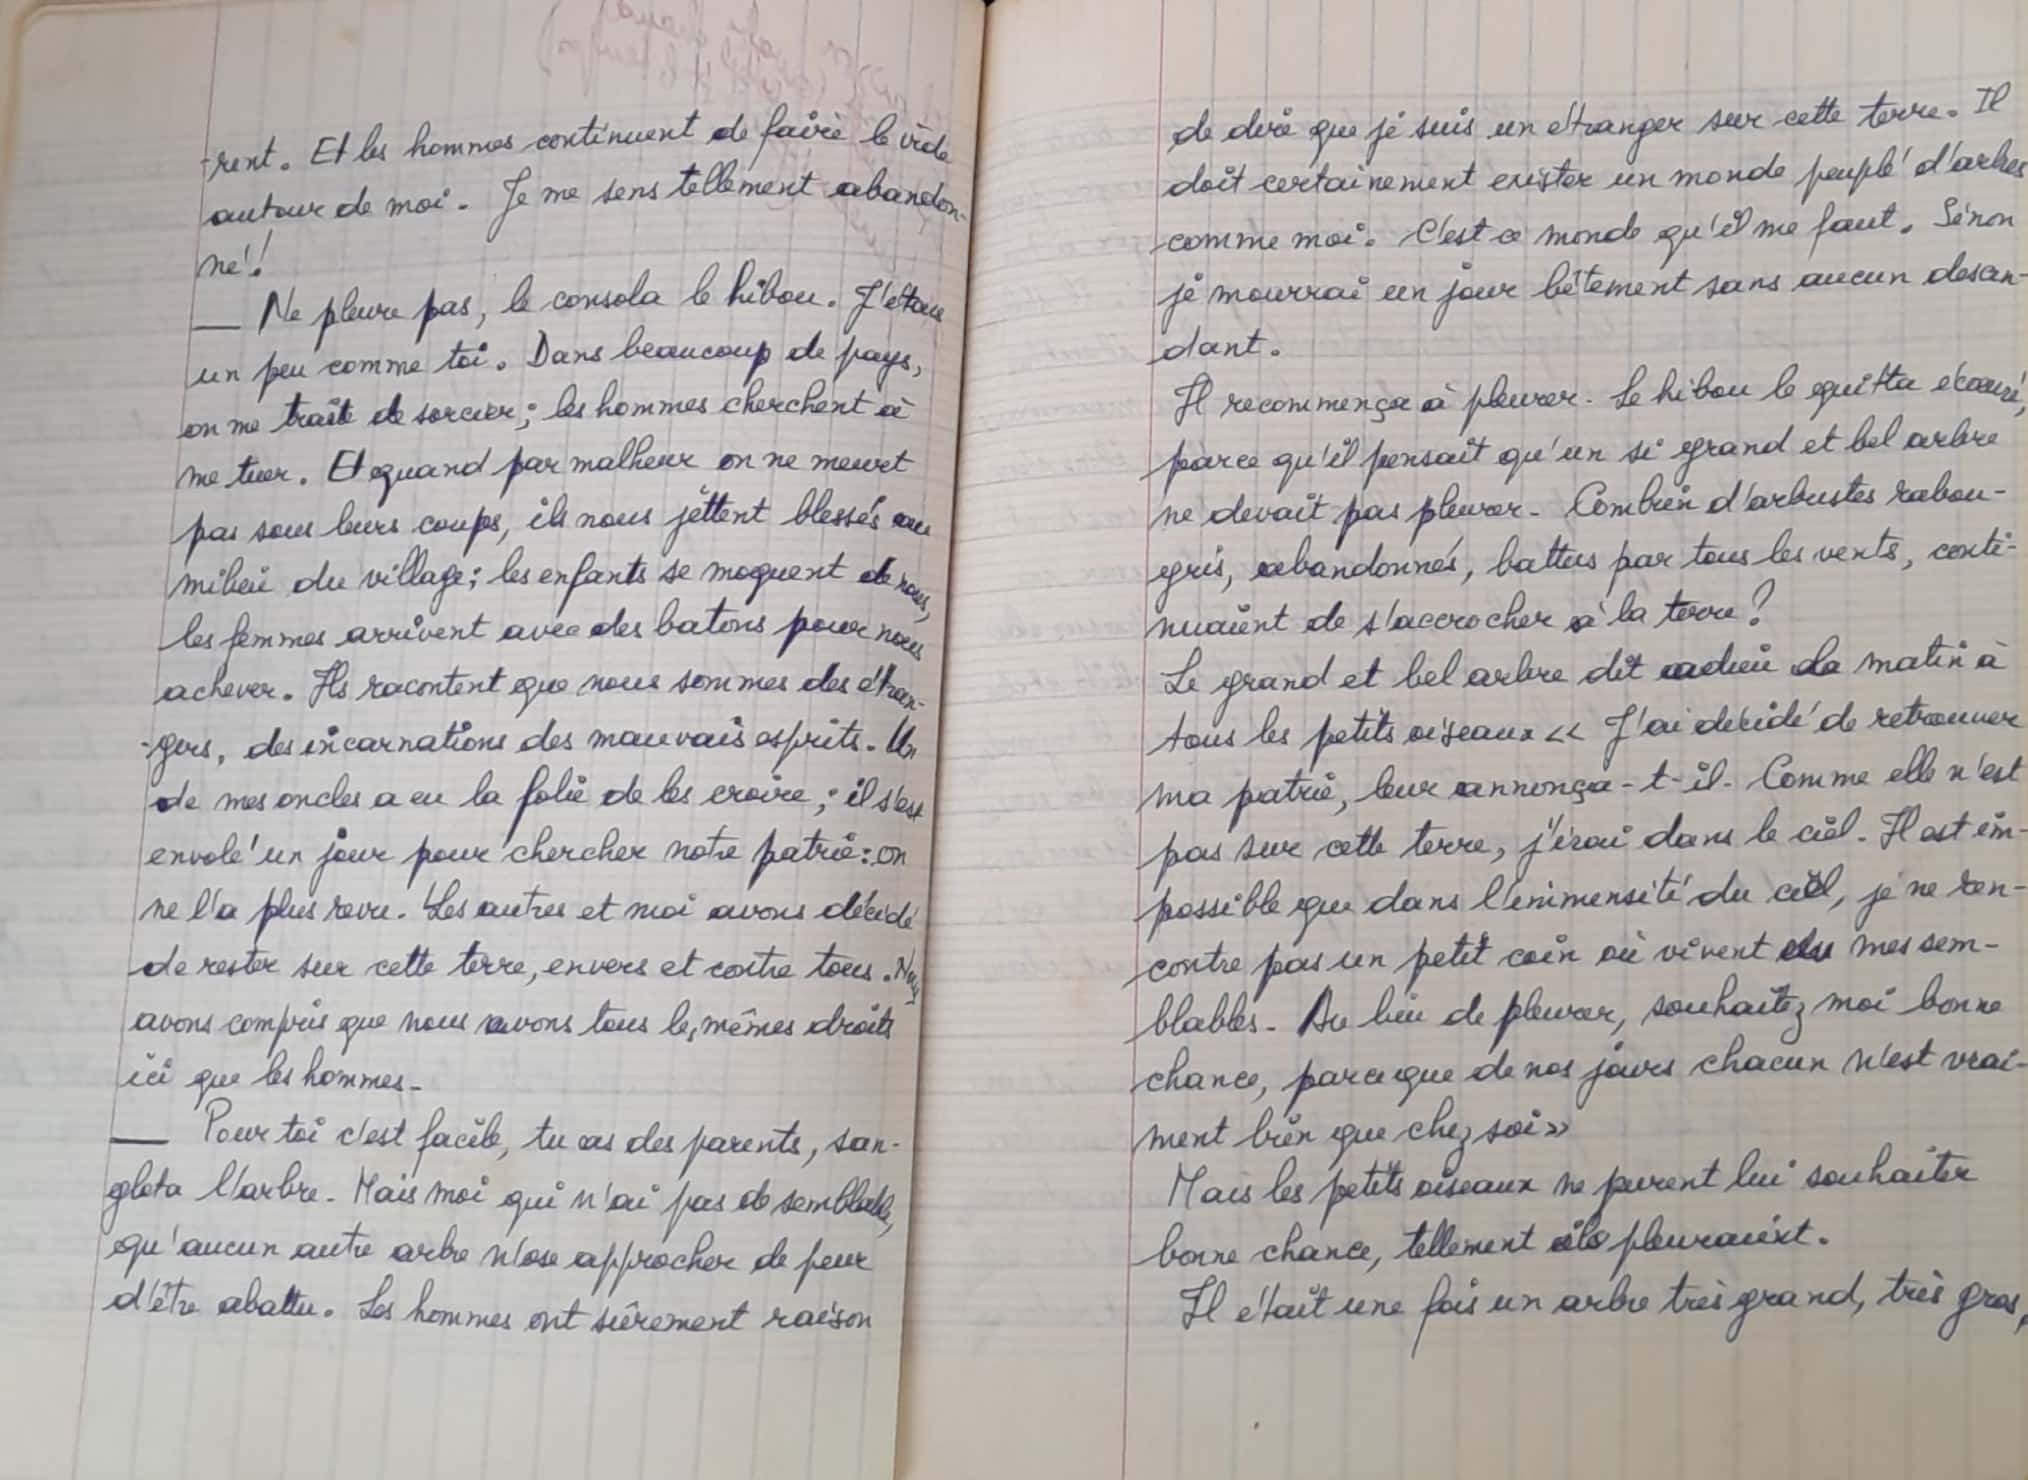 -rent. Et les hommes continuent de faire le vide
autour de moi. Je me sens tellement abandon-
né!
— Ne pleure pas, le consola le hibou. J'étais
un peu comme toi. Dans beaucoup de pays,
on me traite de sorcier; les hommes cherchent à
me tuer. Et quand par malheur on ne meurt
pas sous leurs coups, ils nous jettent blessés au
milieu du village; les enfants se moquent de nous,
les femmes arrivent avec des batons pour nous
achever. Ils racontent que nous sommes des étran-
-gers, des incarnations des mauvais esprits. Un
de mes oncles a eu la folie de les croire; il s'est
envolé un jour pour chercher notre patrie: on
ne l'a plus revu. Les autres et moi avons décidé
de rester sur cette terre, envers et contre tous. Nous
avons compris que nous avons tous les mêmes droits
ici que les hommes.
— Pour toi c'est facile, tu as des parents, san-
glota l'arbre. Mais moi qui n'ai pas de semblable,
qu'aucun autre arbre n'ose approcher de peur
d'être abattu. Les hommes ont sûrement raison
de dire que je suis un étranger sur cette terre. Il
doit certainement exister un monde peuplé d'arbres
comme moi. C'est ce monde qu'il me faut. Sinon
je mourrai un jour bêtement sans aucun descen-
dant.
Il recommença à pleurer. Le hibou le quitta écœuré,
parce qu'il pensait qu'un si grand et bel arbre
ne devait pas pleurer. Combien d'arbustes rabou-
gris, abandonnés, battus par tous les vents, conti-
nuaient de s'accrocher à la terre?
Le grand et bel arbre dit adieu de matin à
tous les petits oiseaux << J'ai décidé de retrouver
ma patrie, leur annonça-t-il. Comme elle n'est
pas sur cette terre, j'irai dans le ciel. Il est im-
possible que dans l'immensité du ciel, je ne ren-
contre pas un petit coin où vivent mes sem-
blables. Au lieu de pleurer, souhaitez moi bonne
chance, parceque de nos jours chacun n'est vrai-
ment bien que chez soi»
Mais les petits oiseaux ne purent lui souhaiter
bonne chance, tellement ils pleuraient.
Il était une fois un arbre très grand, très gros,